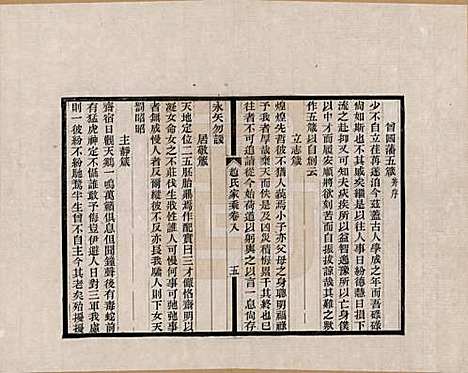 曾國藩五箴并序
少不自立荏苒遂洎今茲蓋古人學成之年而吾碌碌
尚如斯也不其戚矣繼是以往人事日紛德慧日損下
流之赴抑又可知夫疢疾所以益智逸豫所以亡身僕
以中才而履安順將欲刻苦而自振拔諒哉其難之與
作五箴以自創云
立志箴
煌煌先哲彼不猶人藐焉小子亦父母之身聰明福祿
予我者厚哉棄天而佚是及凶災積悔累千其終也已
往者不可追請從今始荷道以躬輿之以言一息尚存
永矢勿諼
居敬箴
天地定位二五胚胎鼎焉作配實曰三才儼恪齋明以
凝女命女之不莊伐生戕性誰人可慢何事可弛弛事
者無成慢人者反爾縱彼不反亦長我驕人則下女天
罰昭昭
主靜箴
齋宿日觀天雞一鳴萬籟俱息但聞鐘聲後有毒蛇前
有猛虎神定不懾誰敢余侮豈伊避人日對三軍我慮
則一彼紛不紛馳騖半生曾不自主今其老矣殆擾擾
趙氏家乘卷八
五